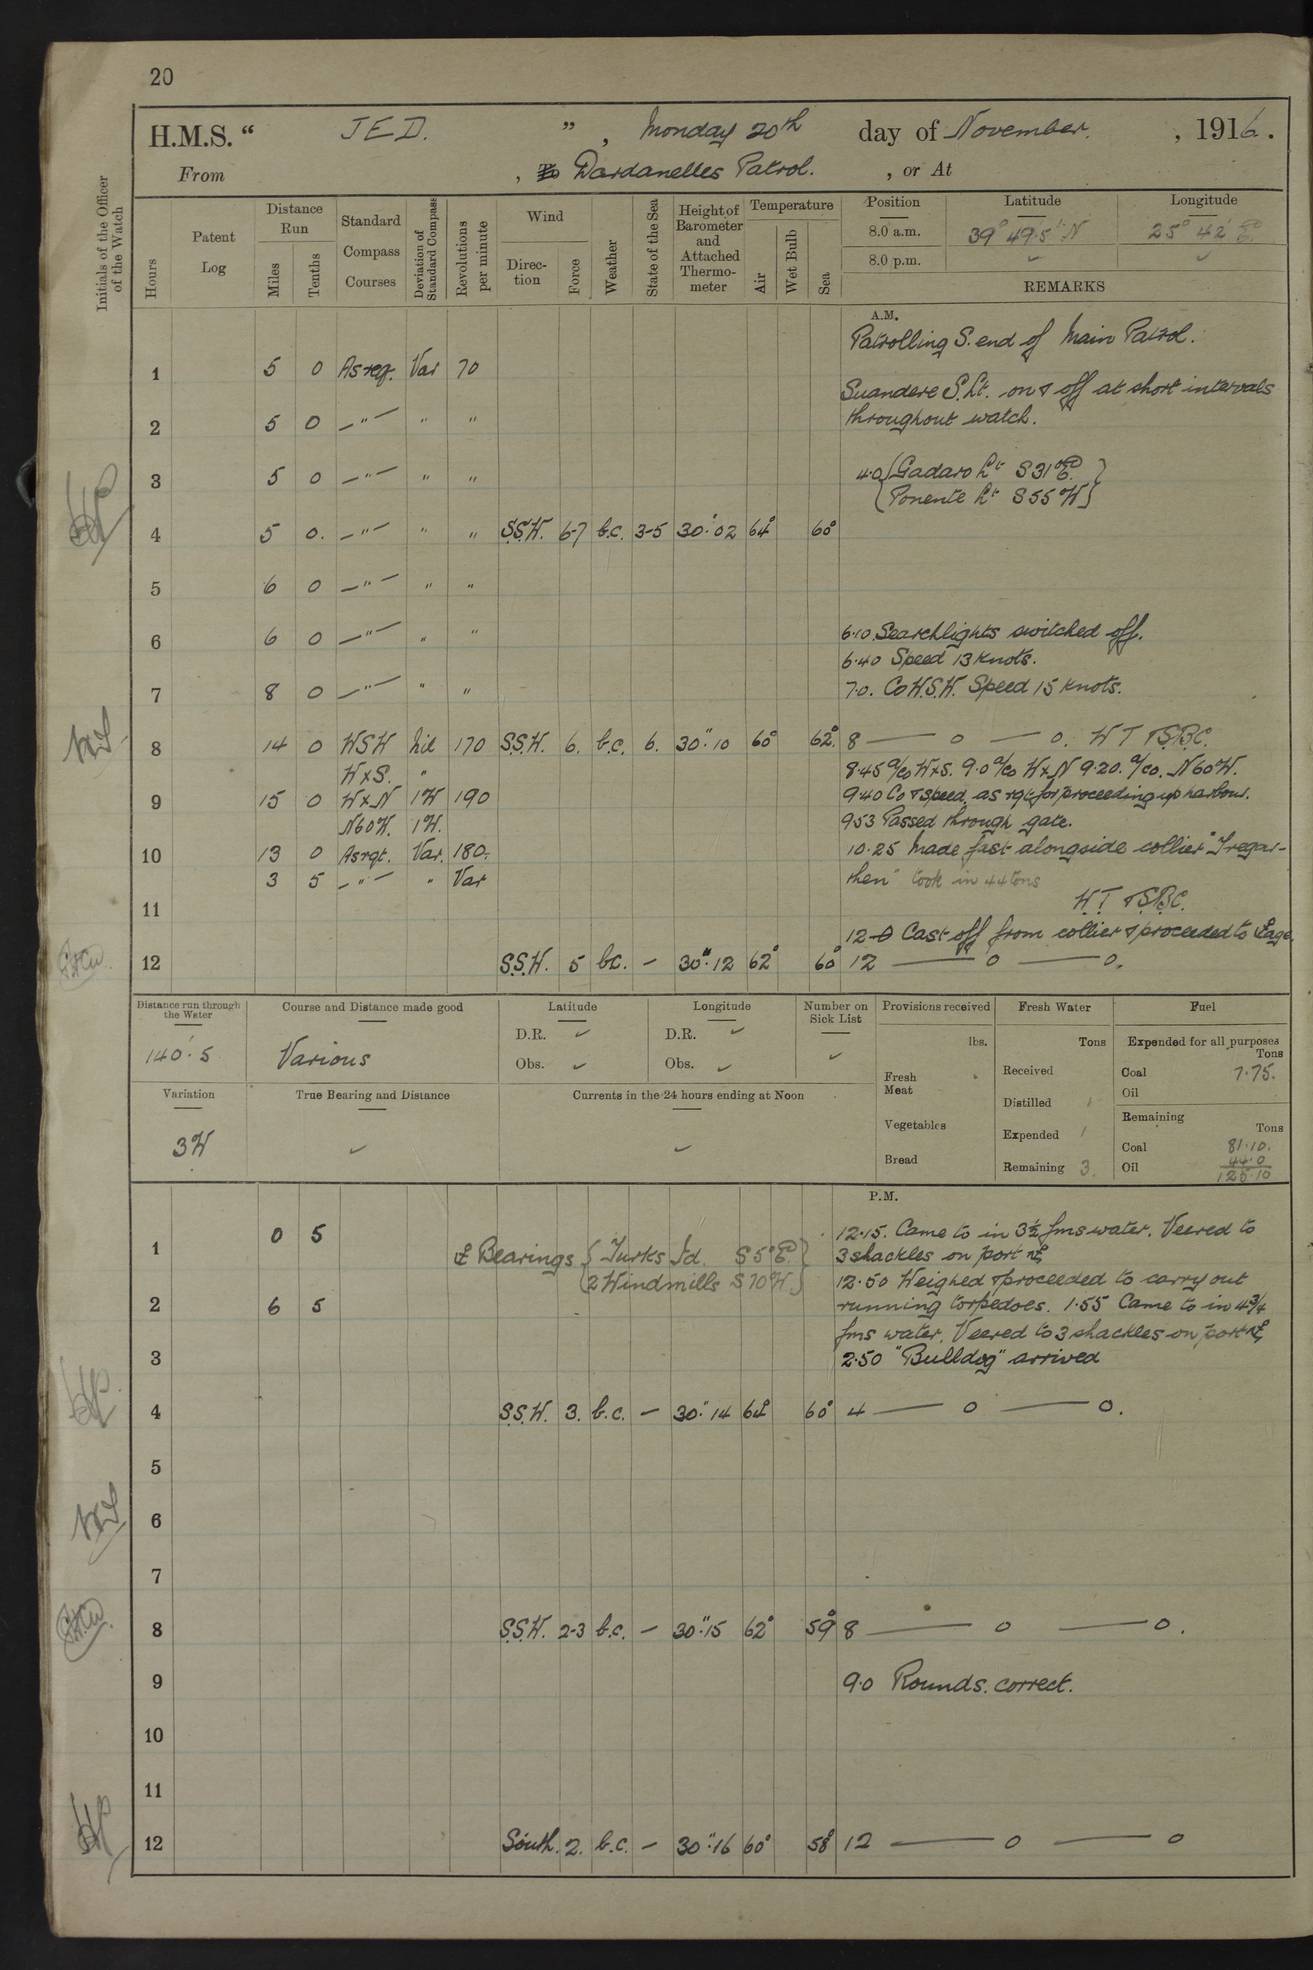 20
H.M.S. " JED. " , Monday 20th day of November. , 1916.
From , To Dardanelles Patrol. , or At
Initials of the Officer of the Watch
Hours
Patent Log
Distance Run
Miles
Tenths
Standard Compass Courses
Deviation of Standard Compass
Revolutions per minute
Wind
Direction
Force
Weather
State of the Sea
Height of Barometer and Attached Thermometer
Temperature
Air
Wet Bulb
Sea
Position Latitude Longitude
8.0 a.m. 39° 49·5' N 25° 42' E
8.0 p.m. ✓ ✓
REMARKS
A.M.
Patrolling S. end of Main Patrol.
1 5 0 As req. Var 70
Suandere S.Lt. on & off at short intervals
2 5 0 —"— " " throughout watch.
3 5 0 —"— " " 4.0 {Gadaro Lt S31°E}
{Ponente Lt S55W}
4 5 0. —"— " " S.S.W. 6-7 b.c. 3-5 30.02 64° 60°
5 6 0 —"— " "
6 6 0 —"— " " 6.10 Searchlights switched off.
6.40 Speed 13 knots.
7 8 0 —"— " " 7.0. Co W.S.W. Speed 15 knots.
8 14 0 WSW Nil 170 S.S.W. 6. b.c. 6. 30".10 60° 62° 8 — 0 — 0. WT & S.B.C.
W x S. " 8.45 a/co WxS. 9.0 a/co WxN 9.20. a/co. N60W.
9 15 0 WxN 1W 190 9.40 Co & speed as rqt for proceeding up harbour.
N60W. 1W. 953 Passed through gate.
10 13 0 As rqt. Var. 180. 10.25 Made fast alongside collier "Tregar-
3 5 —"— " Var then" took in 44 tons
11 W.T & S.B.C.
12-0 Cast off from collier & proceeded to ⚓age.
12 S.S.W. 5 bc. — 30".12 62° 60° 12 — 0 — 0.
Distance run through the Water
140'.5
Course and Distance made good
Various
Latitude
D.R. ✓
Obs. ✓
Longitude
D.R. ✓
Obs. ✓
Number on Sick List
✓
Variation
3W
True Bearing and Distance
✓
Currents in the 24 hours ending at Noon
✓
Provisions received
lbs.
Fresh Meat
Vegetables
Bread
Fresh Water
Tons
Received
Distilled
Expended 1
Remaining 3.
Fuel
Expended for all purposes
Tons
Coal 7.75.
Oil
Remaining
Tons
Coal 81.10.
44.0
Oil 125.10
P.M.
12.15. Came to in 3½ fms water. Veered to
1 0 5 ⚓ Bearings {Turks Id. S5°E} 3 shackles on port ⚓
{2 Windmills S70W} 12.50 Weighed & proceeded to carry out
2 6 5 running torpedoes. 1.55 Came to in 4¾
fms water. Veered to 3 shackles on port ⚓
3 2.50 "Bulldog" arrived
4 S.S.W. 3. b.c. — 30".14 64° 60° 4 — 0 — 0.
5
6
7
8 S.S.W. 2-3 b.c. — 30".15 62° 59° 8 — 0 — 0.
9 9.0 Rounds. correct.
10
11
12 South. 2. b.c. — 30".16 60° 58° 12 — 0 — 0